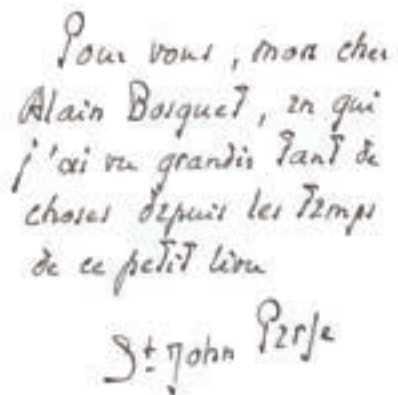 Pour vous, mon cher
Alain Bosquet, en qui
j'ai vu grandir tant de
choses depuis les temps
de ce petit livre
St John Perse